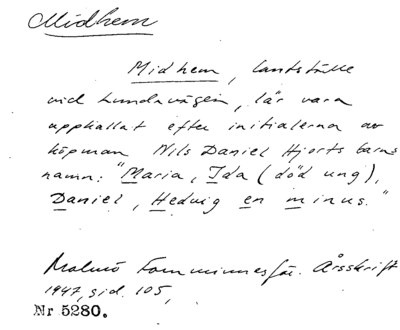 Midhem
Midhem, lantställe
vid Lundavägen, lär vara
uppkallat efter initialerna av
köpman Nils Daniel Hjorts barns
namn: "Maria, Ida (död ung),
Daniel, Hedvig en minus."
Malmö Fornminnesför. Årsskrift
1947, sid. 105,
Nr 5280.